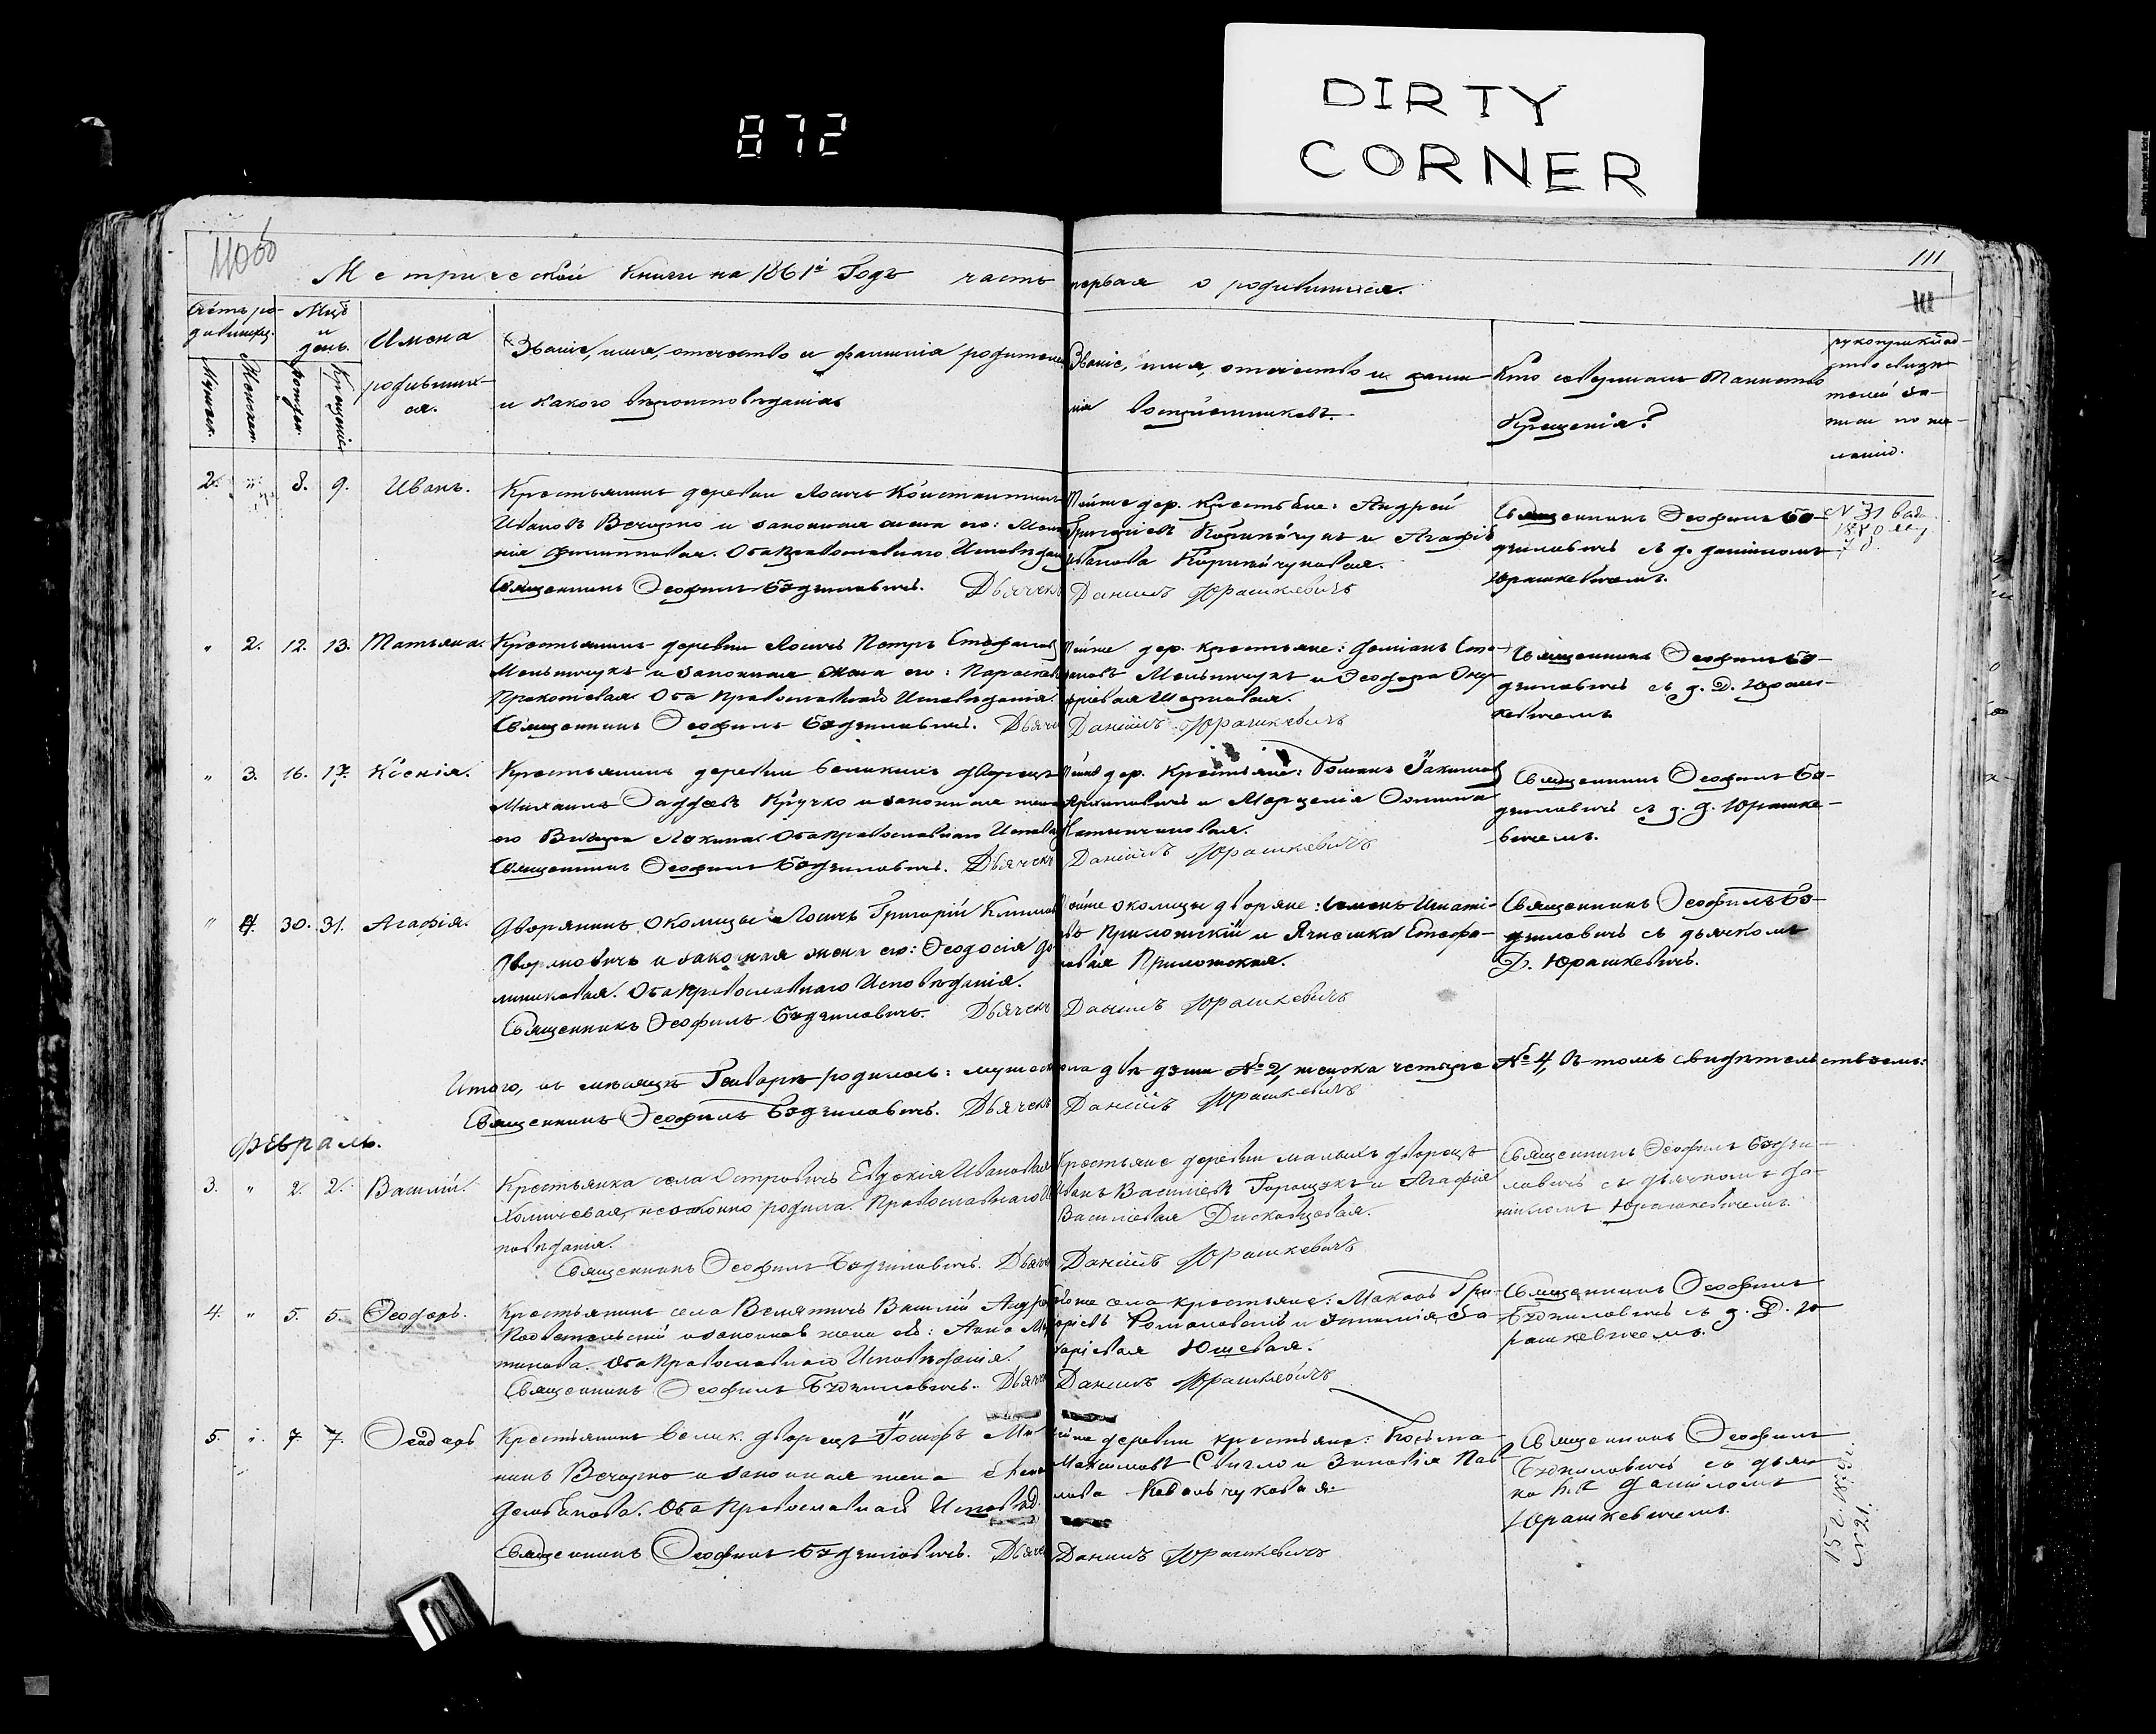 872
DIRTY
CORNER
110об
111
111
Метрической Книги на 1861й Годъ часть первая о родившихся.
Счетъ ро-
дившихъ.
Мцъ
и
день.
Имена
родивших-
ся.
Мужеск.
Женскаго.
рожден.
Крещенія
Званіе, имя, отчество и фамилія родителей
и какого вѣроисповѣданія
Званіе, имя, отчество и фами-
лія воспріемниковъ.
Кто совершалъ Таинство
Крещенія?
рукоприклад-
ство свидѣ-
телей за-
писи по же-
ланію.
2. " 8. 9. Иванъ.
Крестьянинъ деревни Лосичъ Константинъ
Ивановъ Вечорко и законная жена его:
Филиппова. Оба Православнаго Исповѣдан
Священникъ Ѳеофилъ Будзиловичъ. Дьячекъ
Тойже дер. крестьяне: Андрей
Григоріевъ и Агафія
Иванова
Даніилъ Юрашкевичъ
Священникъ Ѳеофилъ Бу-
дзиловичъ съ д. Даніиломъ
Юрашкевичемъ.
N 31
" 2. 12. 13. Татьяна.
Крестьянинъ деревни Лосичъ Петръ Стефановъ
Мельничукъ и законная жена его: Параскева
Прокопіевая. Оба Православнаго Исповѣданія.
Священникъ Ѳеофилъ Будзиловичъ. Дьяче
Тойже дер. крестьяне: Даміанъ Сте-
фановъ Мельничукъ и Ѳеодора
Даніилъ Юрашкевичъ
Священникъ Ѳеофилъ Бу-
дзиловичъ съ д. Д. Юраш-
кевичемъ
" 3. 16. 17. Ксенія.
Крестьянинъ деревни Великихъ Дворецъ
Михаилъ Кручко и законная жена
его Оба Православнаго Исповѣд
Священникъ Ѳеофилъ Будзиловичъ. Дьячекъ
Тойже дер. Крестьяне: Романъ
и
Даніилъ Юрашкевичъ
Священникъ Ѳеофилъ Бу-
дзиловичъ съ д. Д. Юрашке-
вичемъ.
" 4. 30. 31. Агафія.
Дворянинъ Околицы Лосичъ Григорій Климов
и законная жена его: Ѳеодосія До-
миникова. Оба Православнаго Исповѣданія.
Священникъ Ѳеофилъ Будзиловичъ. Дьячекъ
Тойже околицы дворяне: Игнаті-
евъ Приложскій и Стефа-
новая Приложская.
Даніилъ Юрашкевичъ
Священникъ Ѳеофилъ Бу-
дзиловичъ съ дьячкомъ
Д. Юрашкевичъ.
Итого, въ мѣсяцѣ Генварѣ родилось: мужеска пола два дѣти № 2, женска четыре № 4, Въ томъ свидѣтельствуемъ:
Священникъ Ѳеофилъ Будзиловичъ. Дьячекъ Даніилъ Юрашкевичъ
Февраль.
3. " 2. 2. Василій.
Крестьянка села Островичъ Евдокія Ивановая
Хомичевая, незаконно родила. Православнаго Ис
повѣданія.
Священникъ Ѳеофилъ Будзиловичъ. Дьяче
Крестьяне деревни малыхъ дворецъ
Иванъ Василіевъ Горощукъ и Агафія
Василіевая
Даніилъ Юрашкевичъ
Священникъ Ѳеофилъ Будзи-
ловичъ съ дьячкомъ Да-
ніиломъ Юрашкевичемъ.
4. " 5. 5. Ѳеодоръ.
Крестьянинъ села Велятичъ Василій Андре
и законная жена его: Анна
Оба Православнаго Исповѣданія.
Священникъ Ѳеофилъ Будзиловичъ. Дьяче
Тогоже села крестьяне: Макаръ Гри-
горіевъ и
Даніилъ Юрашкевичъ
Священникъ Ѳеофилъ
Будзиловичъ съ д. Д. Ю-
рашкевичемъ.
5. " 7. 7. Ѳеодоръ
Крестьянинъ Велик. дворецъ Іосифъ
Вечорко и законная жена
Оба Православнаго Исповѣд.
Священникъ Ѳеофилъ Будзиловичъ. Дьяче
Тойже деревни крестьяне: Косьма
Максимовъ и Зиновія Пав-
лова Ковальчуковая.
Даніилъ Юрашкевичъ
Священникъ Ѳеофилъ
Будзиловичъ съ дьяч-
Даніиломъ
Юрашкевичемъ.
N 21.